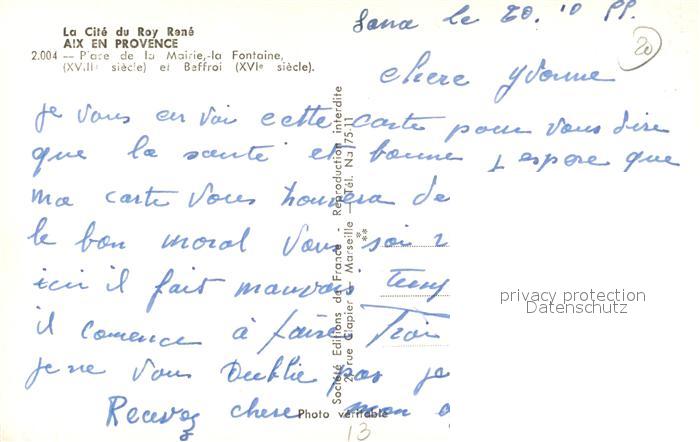 La Cité du Roy René
AIX EN PROVENCE
2.004 — Place de la Mairie, la Fontaine,
(XVIIe siècle) et Beffroi (XVIe siècle).
le 20. 10
20
chere Yvonne
je vous en voi cette carte pour vous dire
que la santé et bonne espere que
ma carte vous de
le bon moral vous soi
icii il fait mauvais
il comence à faire Froi
je ne vous oublie pas je
Recevez chere mon
13
Société Editions de France - Reproduction interdite
rue Clapier - Marseille - Tél. Na 75-11
Photo véritable
privacy protection
Datenschutz